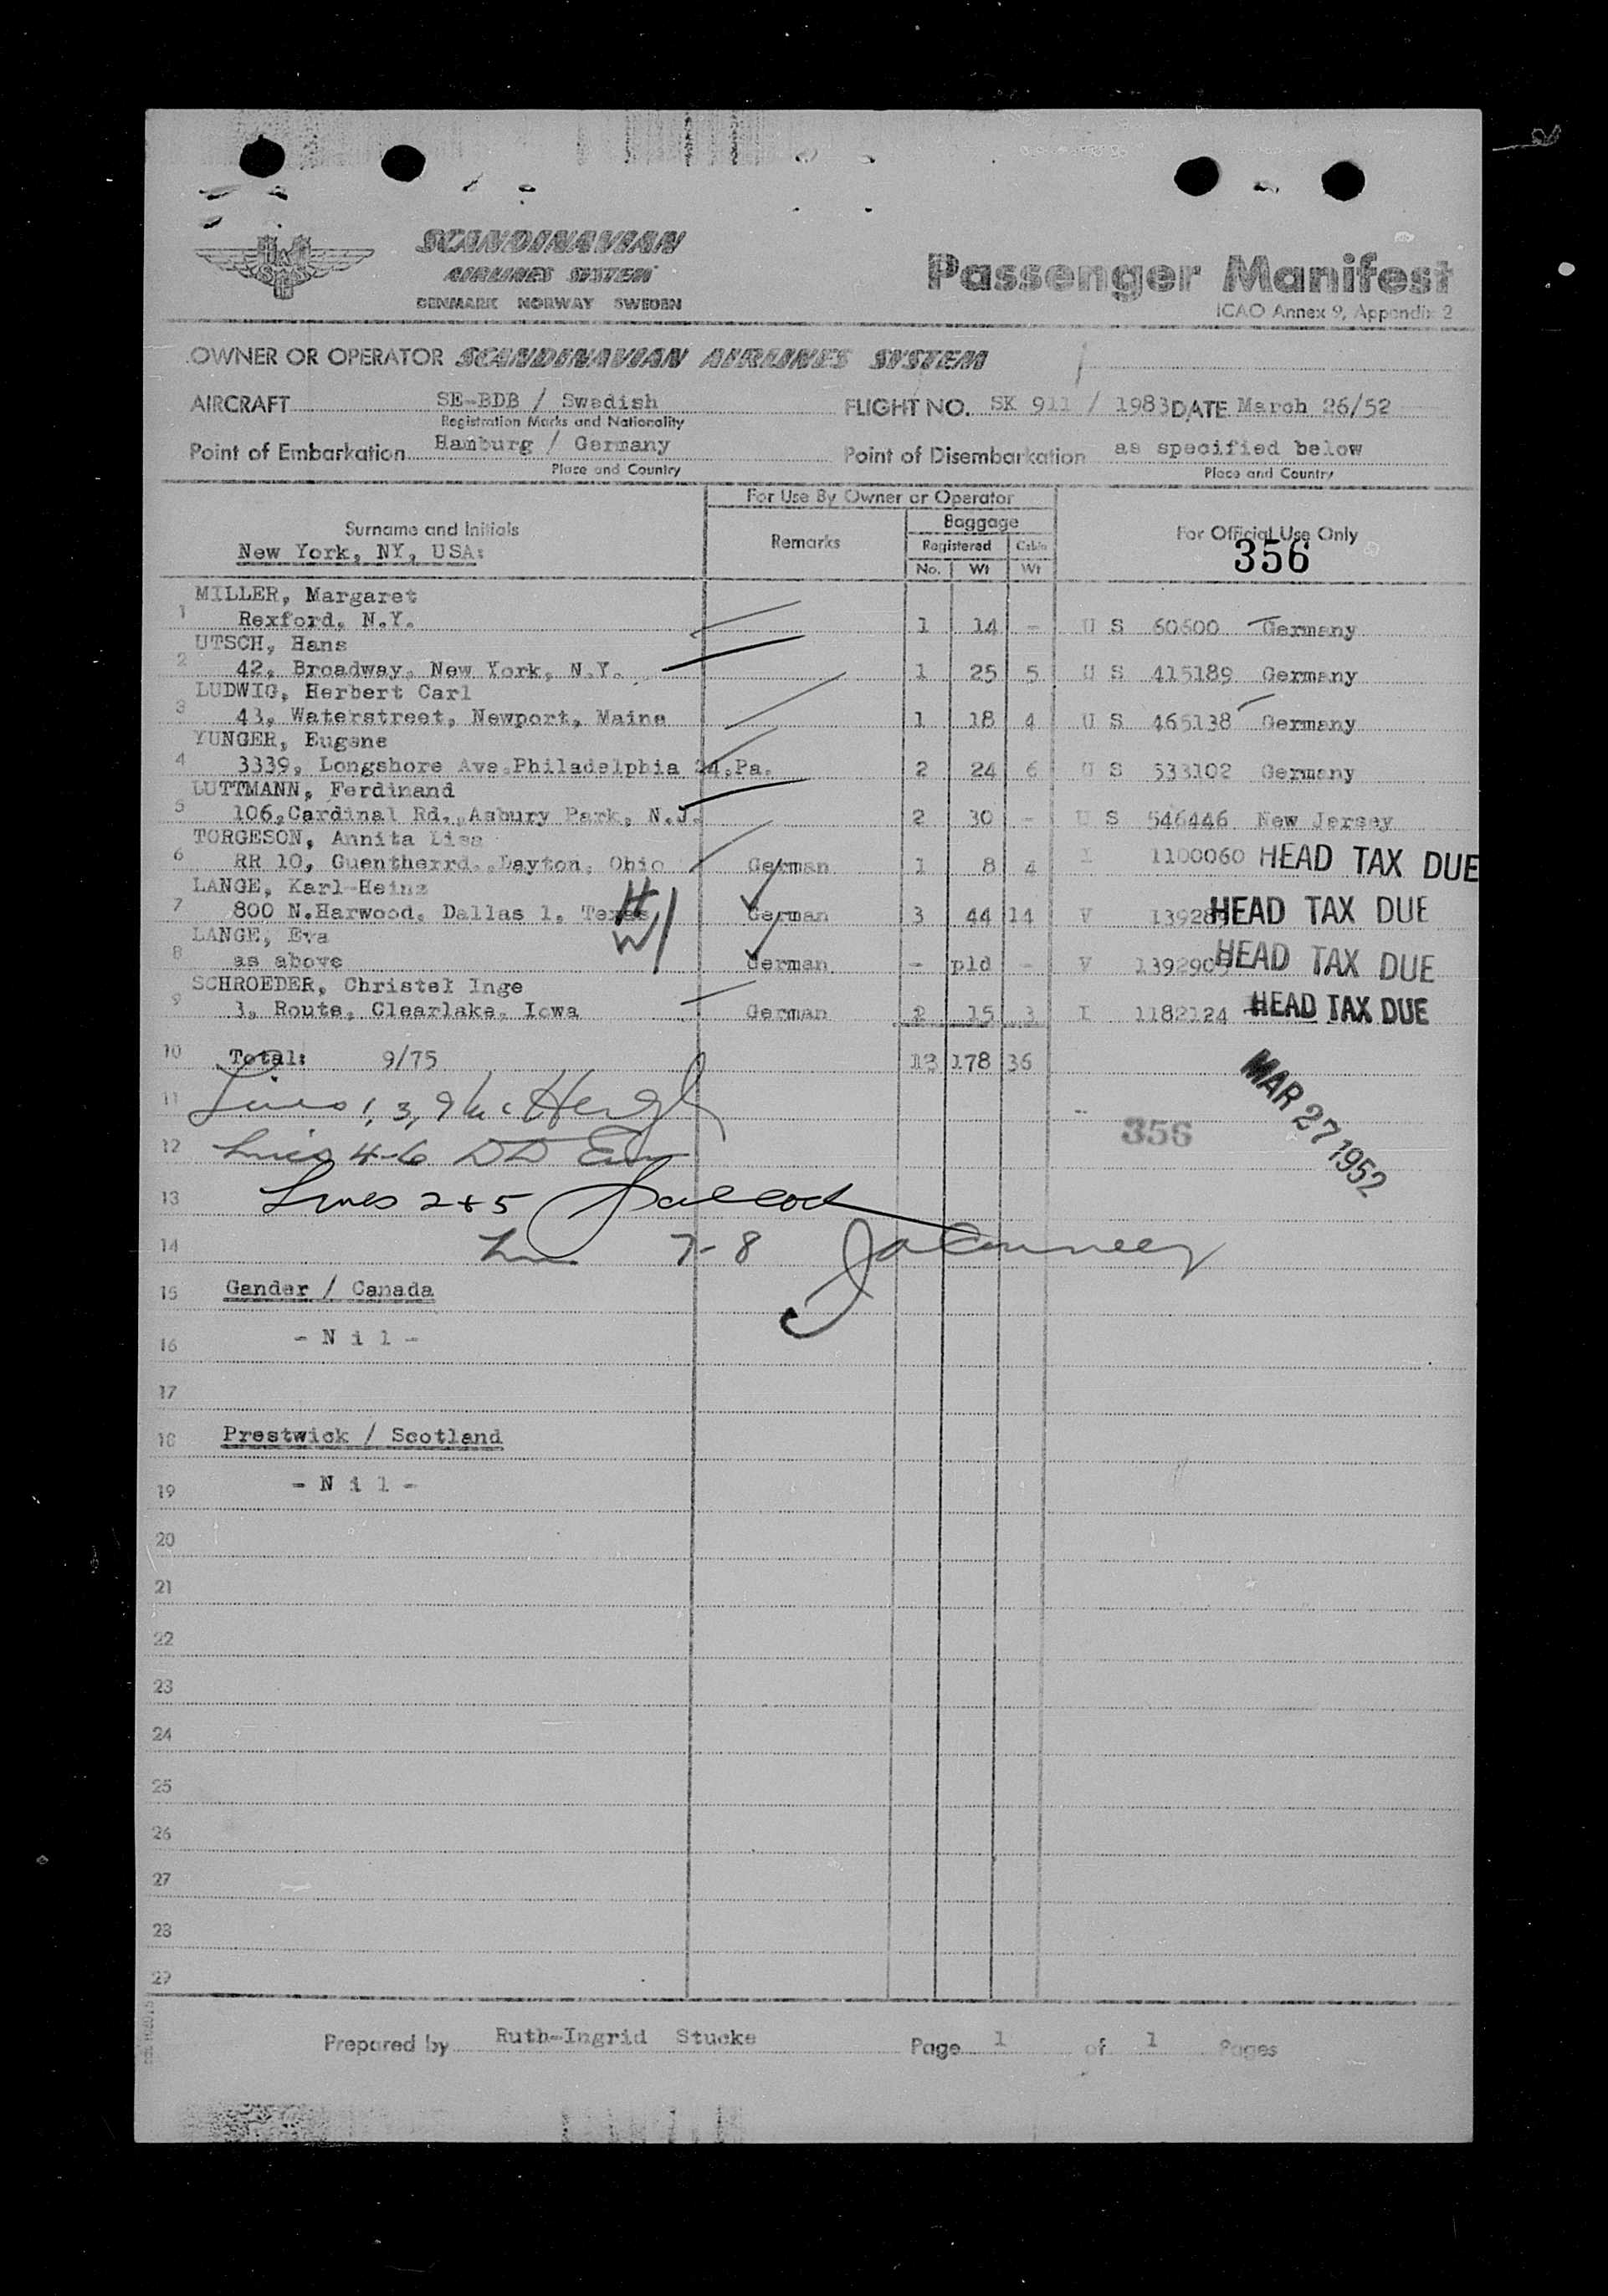 SCANDINAVIAN
AIRLINES SYSTEM
DENMARK NORWAY SWEDEN
Passenger Manifest
ICAO Annex 9, Appendix 2
OWNER OR OPERATOR SCANDINAVIAN AIRLINES SYSTEM
AIRCRAFT SE-BDB / Swedish FLIGHT NO. SK 911 / 1983 DATE March 26/52
Registration Marks and Nationality
Point of Embarkation Hamburg / Germany Point of Disembarkation as specified below
Place and Country Place and Country
For Use By Owner or Operator
Surname and Initials Remarks Baggage For Official Use Only
New York, NY, USA: Registered Cabin 356
No. Wt Wt
MILLER, Margaret
1 Rexford, N.Y. 1 14 - U S 60600 Germany
UTSCH, Hans
2 42, Broadway, New York, N.Y. 1 25 5 U S 415189 Germany
LUDWIG, Herbert Carl
3 43, Waterstreet, Newport, Maine 1 18 4 U S 465138 Germany
YUNGER, Eugene
4 3339, Longshore Ave.Philadelphia 24,Pa. 2 24 6 U S 533102 Germany
LUTTMANN, Ferdinand
5 106,Cardinal Rd.,Asbury Park, N.J. 2 30 - U S 546446 New Jersey
TORGESON, Annita Lisa
6 RR 10, Guentherrd.,Dayton, Ohio German 1 8 4 I 1100060 HEAD TAX DUE
LANGE, Karl-Heinz
7 800 N.Harwood, Dallas 1, Texas H German 3 44 14 V HEAD TAX DUE
LANGE, Eva W
8 as above German - pld - V HEAD TAX DUE
SCHROEDER, Christel Inge
9 1, Route, Clearlake, Iowa German 2 15 3 I 1182124 HEAD TAX DUE
10 Total: 9/75 13 178 36
MAR 27 1952
11 Lines 1, 3, 9
356
12 Lines 4-6 DD
13 Lines 2+5
14 7-8
15 Gander / Canada
16 - N i l -
17
18 Prestwick / Scotland
19 - N i l -
20
21
22
23
24
25
26
27
28
29
Prepared by Ruth-Ingrid Stucke Page 1 of 1 Pages